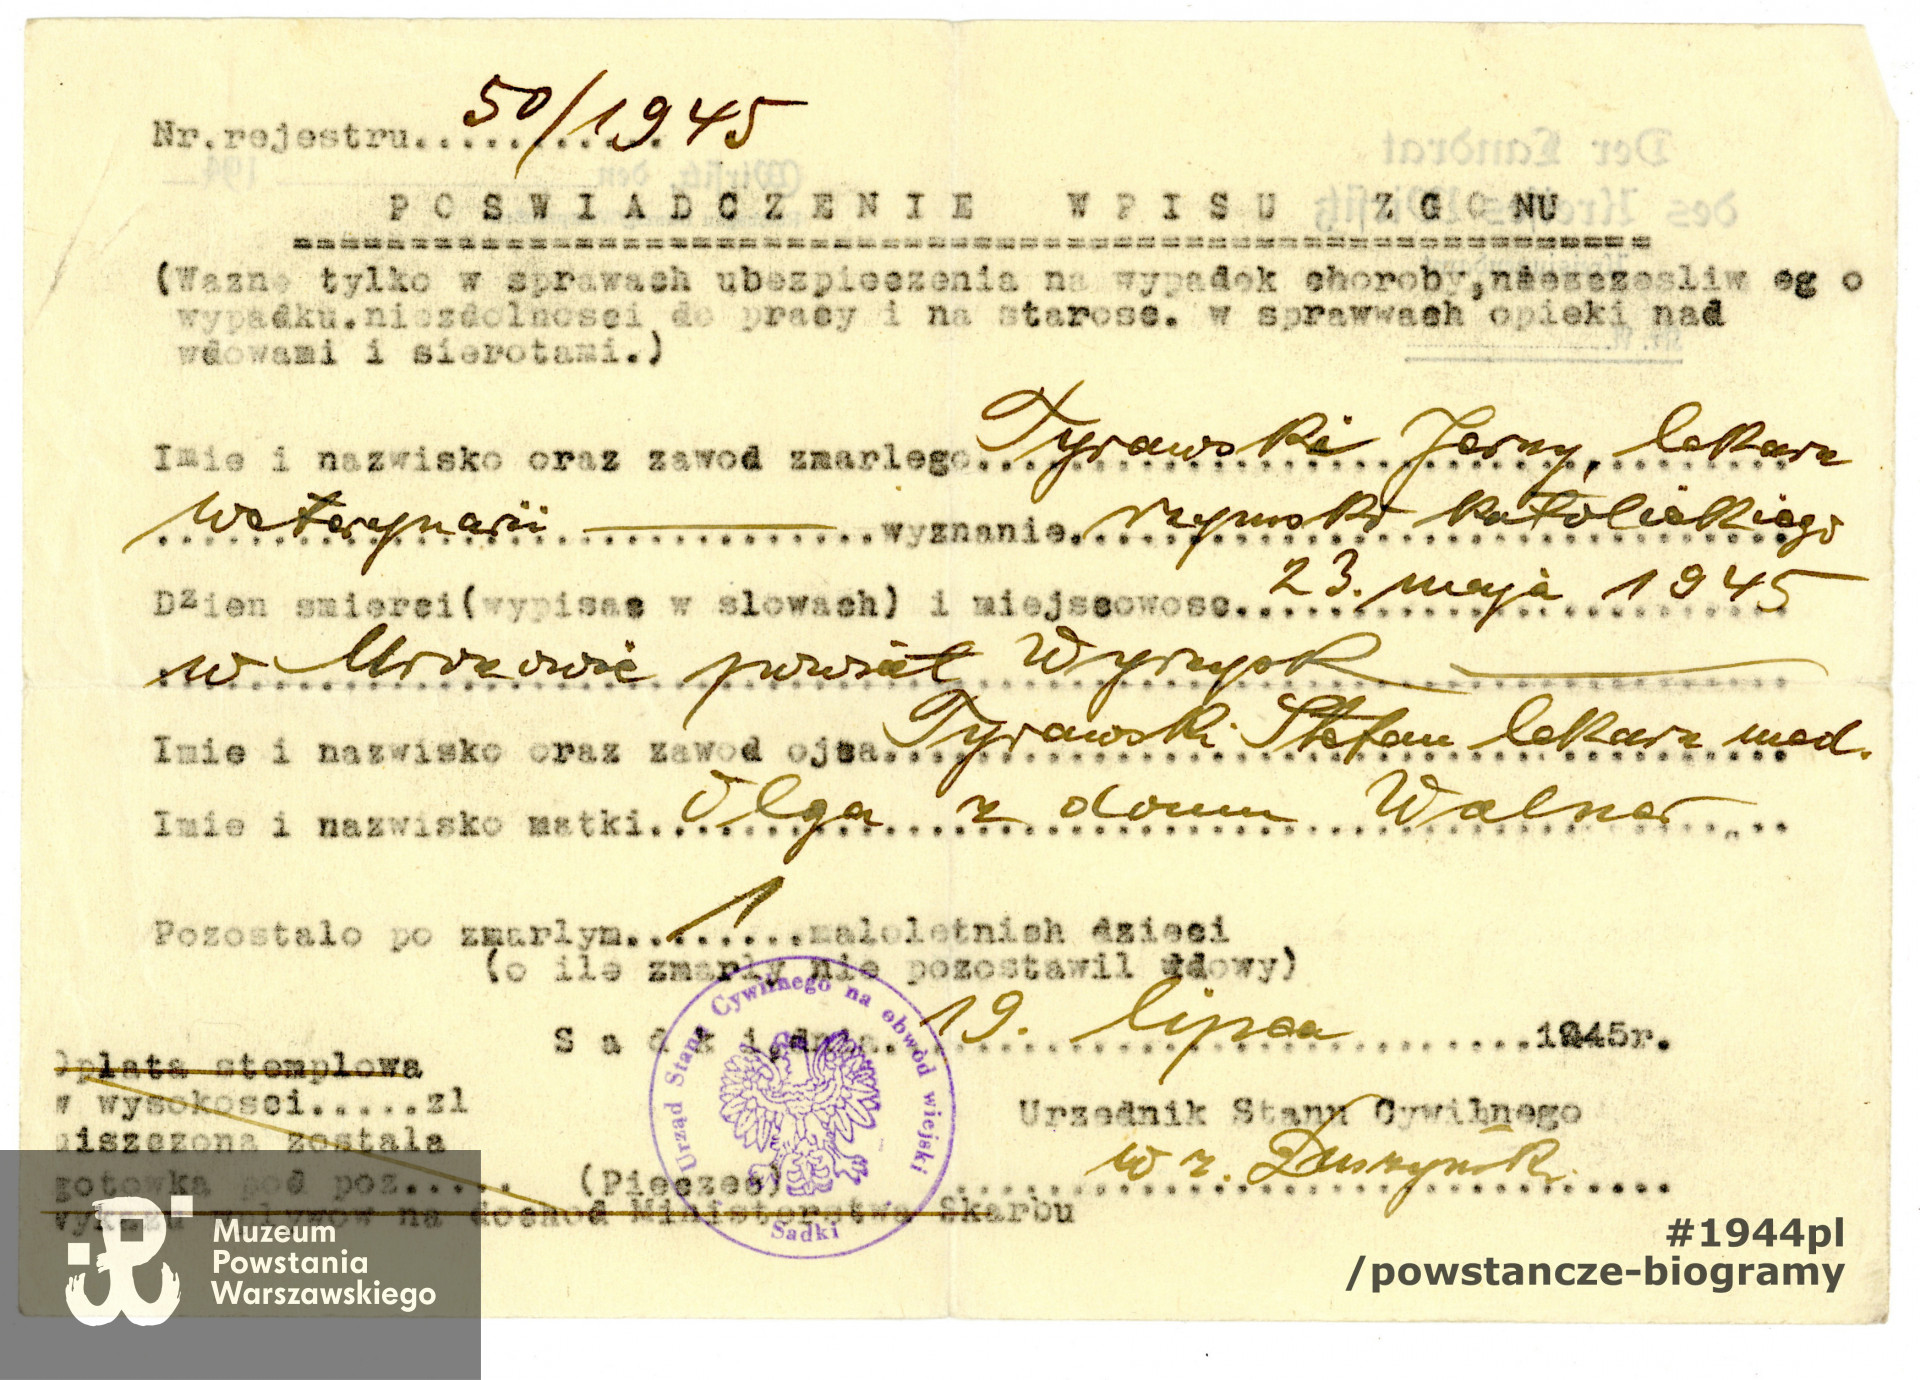 Nr.rejestru.......... 50/1945
POSWIADCZENIE WPISU ZGONU
(Wazne tylko w sprawach ubezpieczenia na wypadek choroby,nieszczesliw eg o
wypadku.niezdolnosci do pracy i na starosc. w sprawwach opieki nad
wdowami i sierotami.)
Imie i nazwisko oraz zawod zmarlego Tyrawski Jerzy, lekarz
weterynarii wyznanie rzymsko katolickiego
Dzien smierci(wypisac w slowach) i miejscowosc 23. maja 1945
w Mrozowie powiat Wyrzysk
Imie i nazwisko oraz zawod ojca Tyrawski Stefan lekarz med.
Imie i nazwisko matki Olga z domu Walner
Pozostalo po zmarlym 1 maloletnich dzieci
(o ile zmarly nie pozostawil wdowy)
Sadki,dnia 19. lipca 1945r.
Oplata stemplowa
w wysokosci.....zl
uiszczona zostala
gotowka pod poz.....
wykazu wplywow na dochod Ministerstwa Skarbu
(Pieczec)
Urzednik Stanu Cywilnego
w z. Duszyński
Urząd Stanu Cywilnego na obwód wiejski
Sadki
Der Landrat
des Kreises Wirsitz
Wirsitz, den 194
Muzeum
Powstania
Warszawskiego
#1944pl
/powstancze-biogramy